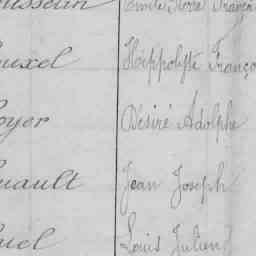 Emile Pierre França
Hippolyte Franço
oyer Désiré Adolphe
uault Jean Joseph
uel Louis Julien